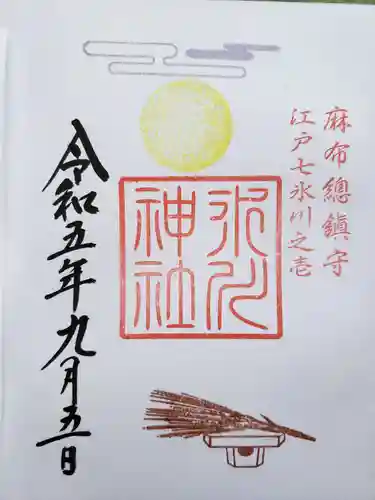 麻布總鎮守
江戸七氷川之壱
氷川
神社
令和五年九月五日